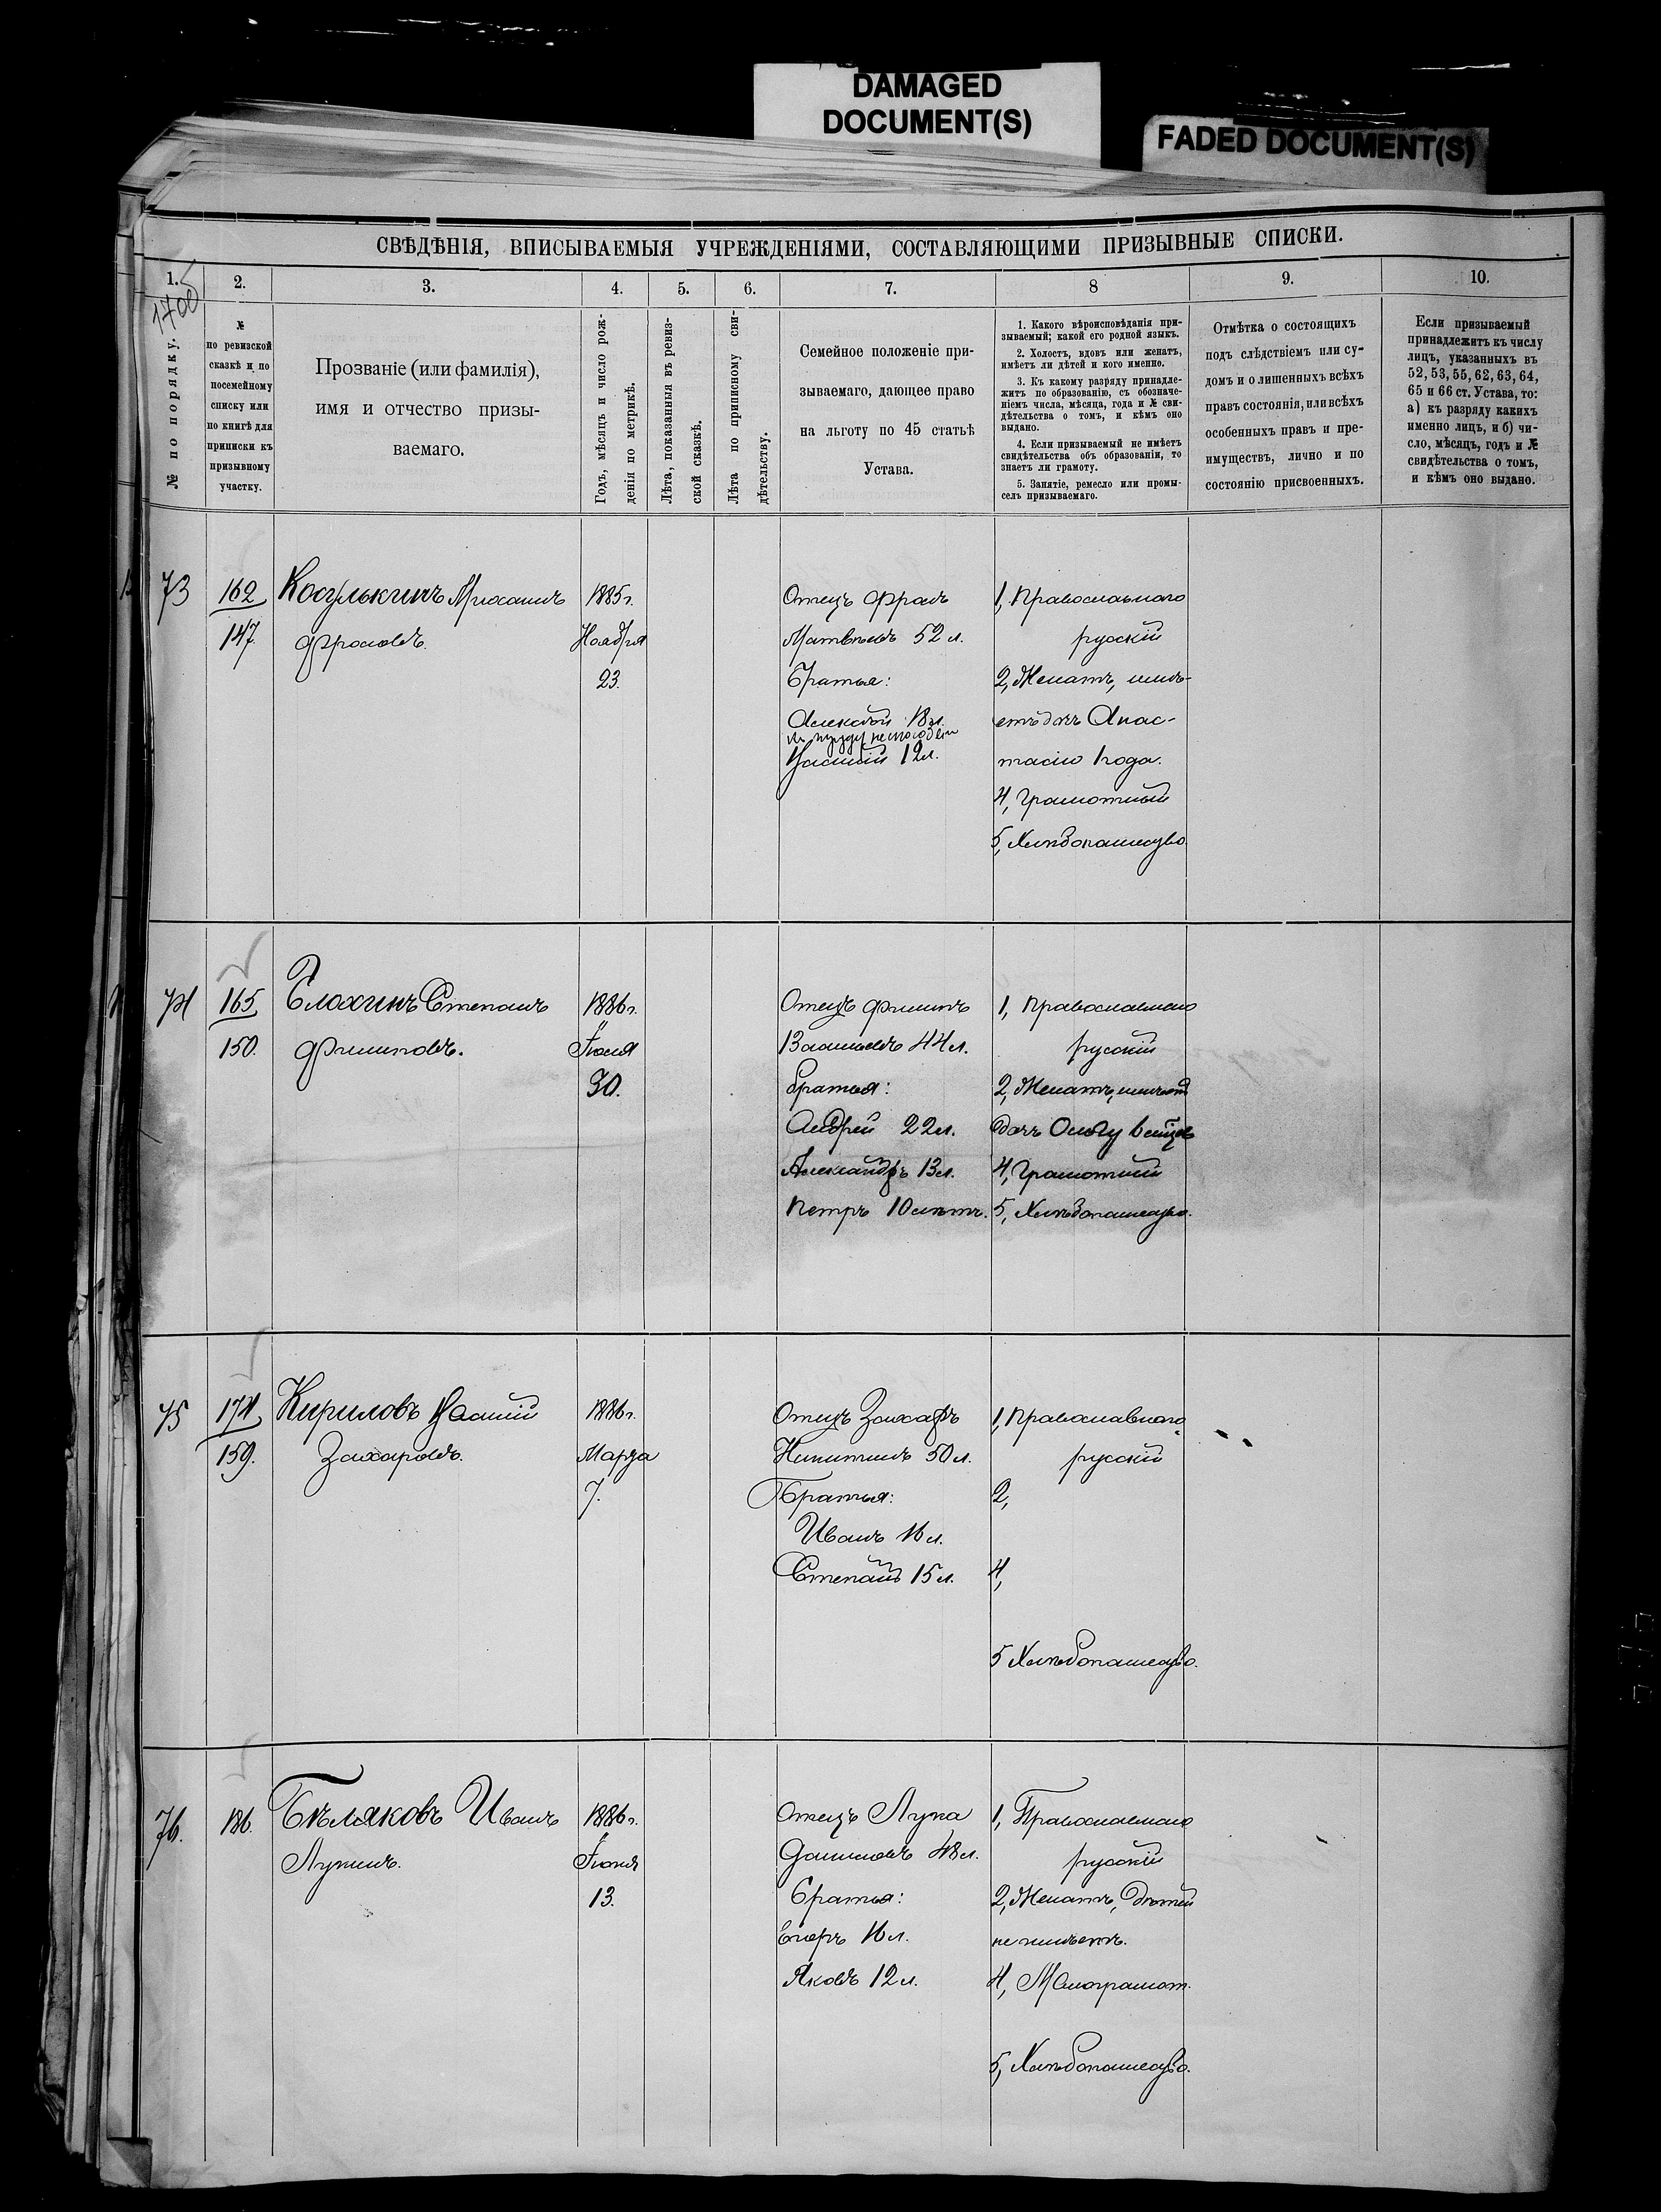 DAMAGED
DOCUMENT(S)
FADED DOCUMENT(S)
СВѢДѢНІЯ, ВПИСЫВАЕМЫЯ УЧРЕЖДЕНІЯМИ, СОСТАВЛЯЮЩИМИ ПРИЗЫВНЫЕ СПИСКИ.
1.
2.
3.
4.
5.
6.
7.
8
9.
10.
№ по порядку.
№
по ревизской
сказкѣ и по
посемейному
списку или
по книгѣ для
приписки къ
призывному
участку.
Прозваніе (или фамилія),
имя и отчество призы-
ваемаго.
Годъ, мѣсяцъ и число рож-
денія по метрикѣ.
Лѣта, показанныя въ ревиз-
ской сказкѣ.
Лѣта по приписному сви-
дѣтельству.
Семейное положеніе при-
зываемаго, дающее право
на льготу по 45 статьѣ
Устава.
1. Какого вѣроисповѣданія при-
зываемый; какой его родной языкъ.
2. Холостъ, вдовъ или женатъ,
имѣетъ ли дѣтей и кого именно.
3. Къ какому разряду принадле-
житъ по образованію, съ обозначе-
ніемъ числа, мѣсяца, года и № сви-
дѣтельства о томъ, и кѣмъ оно
выдано.
4. Если призываемый не имѣетъ
свидѣтельства объ образованіи, то
знаетъ ли грамоту.
5. Занятіе, ремесло или промы-
селъ призываемаго.
Отмѣтка о состоящихъ
подъ слѣдствіемъ или су-
домъ и о лишенныхъ всѣхъ
правъ состоянія, или всѣхъ
особенныхъ правъ и пре-
имуществъ, лично и по
состоянію присвоенныхъ.
Если призываемый
принадлежитъ къ числу
лицъ, указанныхъ въ
52, 53, 55, 62, 63, 64,
65 и 66 ст. Устава, то:
а) къ разряду какихъ
именно лицъ, и б) чи-
сло, мѣсяцъ, годъ и №
свидѣтельства о томъ,
и кѣмъ оно выдано.
73
162
147.
Косулькинъ
Фроловъ.
1885 г.
Ноября
23.
Отецъ Фролъ
Матвѣевъ 52 л.
Братья:
Алексѣй 18 л.
къ труду неспособенъ
Василій 12 л.
1, Православнаго
русскій
2, Женатъ, имѣ-
етъ дочь Анас-
тасію 1 года.
4, Грамотный
5, Хлѣбопашество
74
165
150.
Блохинъ Степанъ
Филиповъ.
1886 г.
Іюля
30.
Отецъ Филипъ
Васильевъ 44 л.
Братья:
Андрей 22 л.
Александръ 13 л.
Петръ 10 лѣтъ.
1, Православнаго
русскій
2, Женатъ, имѣетъ
дочь Ольгу
4, Грамотный
5, Хлѣбопашество.
75
174
159.
Кириловъ Василій
Захаровъ.
1886 г.
Марта
7.
Отецъ Захаръ
Никитинъ 50 л.
Братья:
Иванъ 16 л.
Степанъ 15 л.
1, Православнаго
русскій
2,
4,
5 Хлѣбопашество.
76.
186.
Бѣляковъ Иванъ
Лукинъ.
1886 г.
Іюня
13.
Отецъ Лука
Даниловъ 48 л.
Братья:
Егоръ 16 л.
Яковъ 12 л.
1, Православнаго
русскій
2, Женатъ, дѣтей
не имѣетъ.
4, Малограмот.
5, Хлѣбопашество.